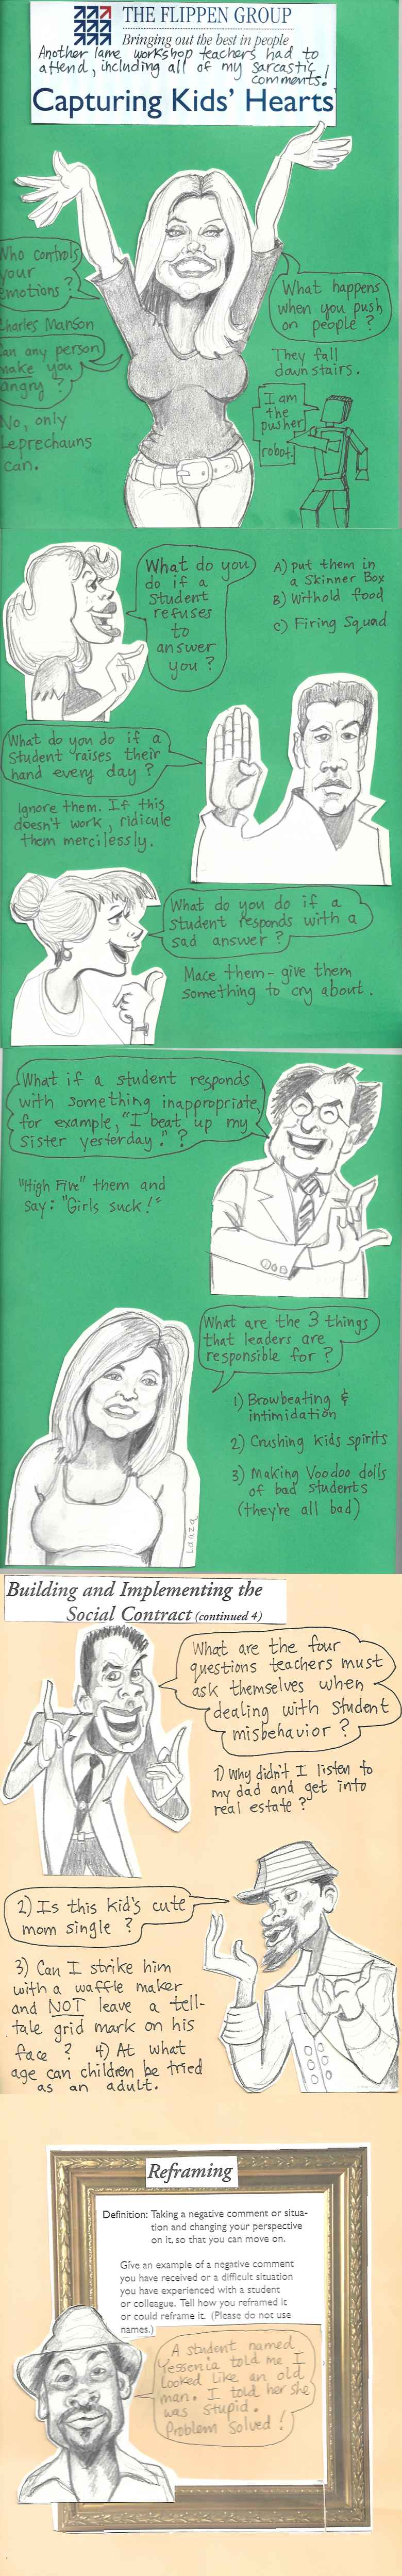 THE FLIPPEN GROUP
Bringing out the best in people
Another lame workshop teachers had to
attend, including all of my sarcastic
comments!
Capturing Kids' Hearts
Who controls
your
emotions?
Charles Manson
Can any person
make you
angry?
No, only
Leprechauns
can.
What happens
when you push
on people?
They fall
down stairs.
I am
the
pusher
robot.
What do you
do if a
student
refuses
to
answer
you?
A) put them in
a Skinner Box
B) Withold food
C) Firing Squad
What do you do if a
student raises their
hand every day?
Ignore them. If this
doesn't work, ridicule
them mercilessly.
What do you do if a
student responds with a
sad answer?
Mace them - give them
something to cry about.
What if a student responds
with something inappropriate,
for example, "I beat up my
sister yesterday."?
"High Five" them and
say: "Girls suck!"
What are the 3 things
that leaders are
responsible for?
1) Browbeating &
intimidation
2) Crushing kids spirits
3) Making Voodoo dolls
of bad students
(they're all bad)
Laaza
Building and Implementing the
Social Contract (continued 4)
What are the four
questions teachers must
ask themselves when
dealing with student
misbehavior?
1) Why didn't I listen to
my dad and get into
real estate?
2) Is this kid's cute
mom single?
3) Can I strike him
with a waffle maker
and NOT leave a tell-
tale grid mark on his
face? 4) At what
age can children be tried
as an adult.
Reframing
Definition: Taking a negative comment or situa-
tion and changing your perspective
on it, so that you can move on.
Give an example of a negative comment
you have received or a difficult situation
you have experienced with a student
or colleague. Tell how you reframed it
or could reframe it. (Please do not use
names.)
A student named
Yessenia told me I
looked like an old
man. I told her she
was stupid.
Problem Solved!